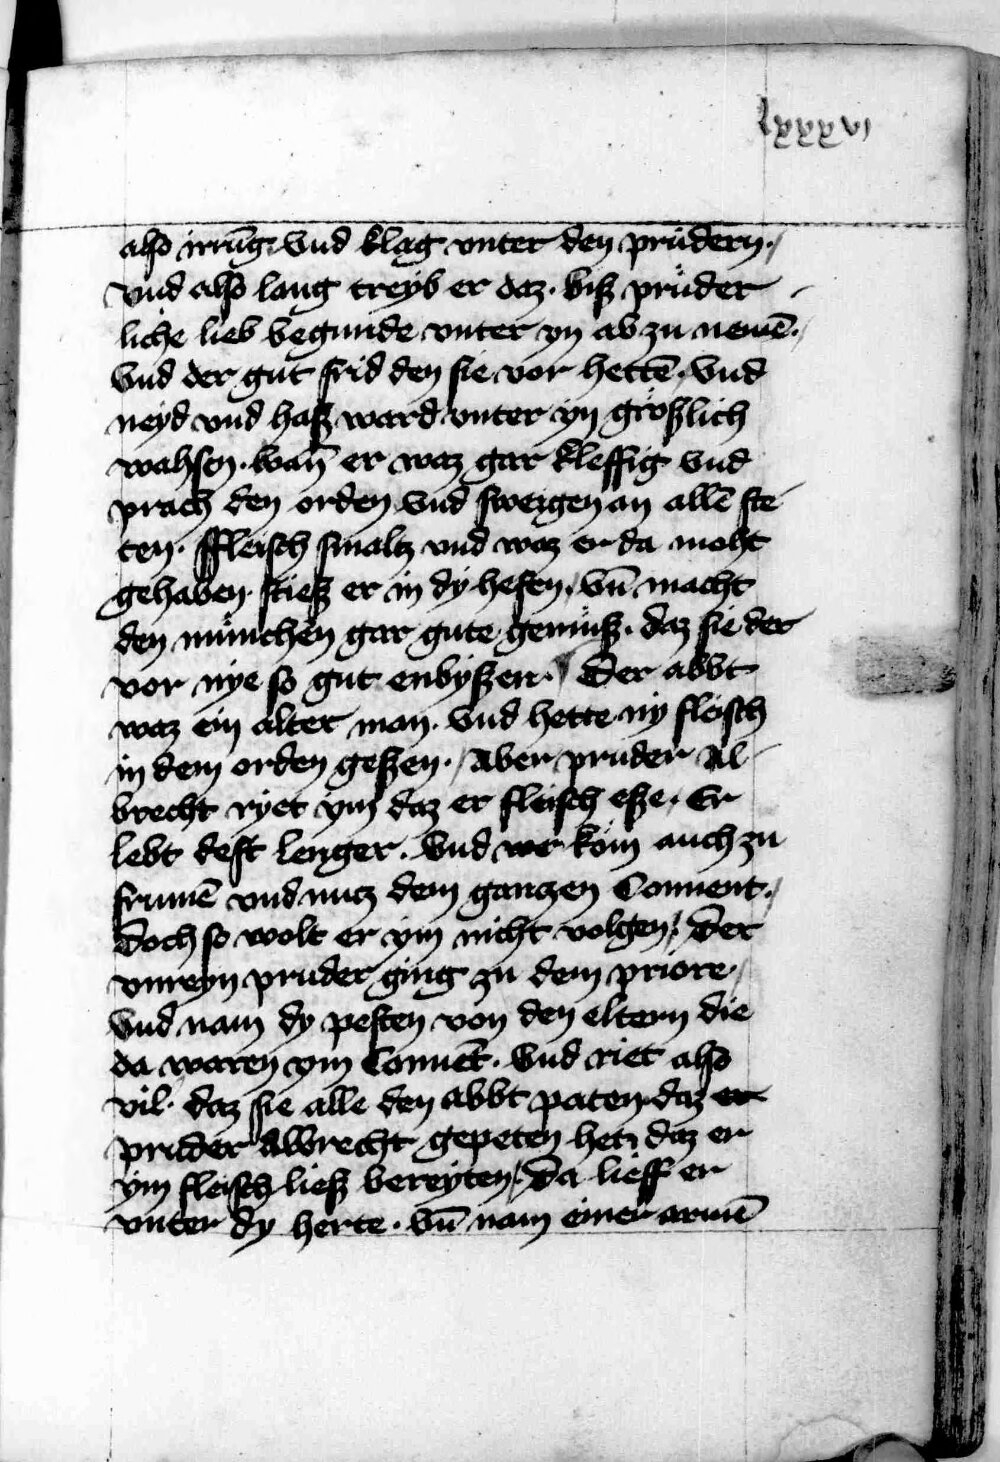 lxxxvi
also irrūg. Vnd klag vnter den prüdern.
vnd also lang treyb er daz. biß prüder
liche lieb begunde vnter yn ab zu nemē.
Vnd der gut frid den sie vor hettē. Vnd
neyd vnd haß ward vnter yn größlich
wahsen. wañ er waz gar kleffig vnd
prach den orden vnd sweigen an allē ste
ten. ffleisch smaltz vnd waz er da moht
gehaben. stieß er in dy hefen. vñ macht
den münchen gar gute gemüß. daz sie der
vor nye so gut enbyßen. Der abbt
waz ein alter man. vnd hette ny fleisch
in dem orden geßen. Aber pruder Al
brecht ryet ym daz er fleisch eße. Er
lebt dest lenger. Vnd wer köm auch zu
frumē vnd nutz dem gantzen Conuent.
Doch so wolt er ym nicht volgen. Der
vnreyn pruder ging zu dem priore.
Vnd nam dy pesten von den eltern die
da waren ym Conuēt. Vnd riet also
vil. daz sie alle den abbt paten daz er
pruder Albrecht gepeten het. daz er
ym fleisch ließ bereyten. Da lieff er
vnter dy herte. vñ nam einer armē